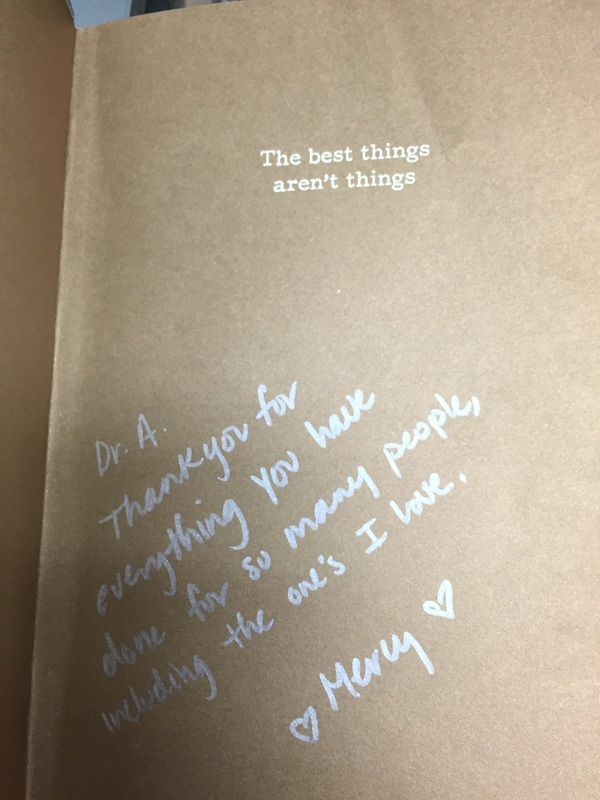 The best things
aren't things
Dr. A.
Thankyou for
everything you have
done for so many people,
including the one's I love.
♡ Mercy ♡